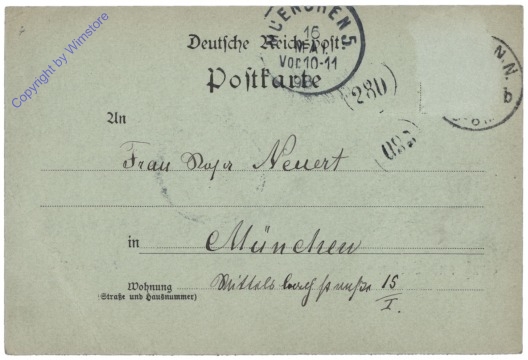 Copyright by Wimstore
MUENCHEN 5.
16
MAI
Vor 10-11
98
Deutsche Reichspost.
Postkarte
280
N.N.
b
An
Frau Neuert
in München
Wohnung Mittelsbachstraße 15
(Straße und Hausnummer) I.